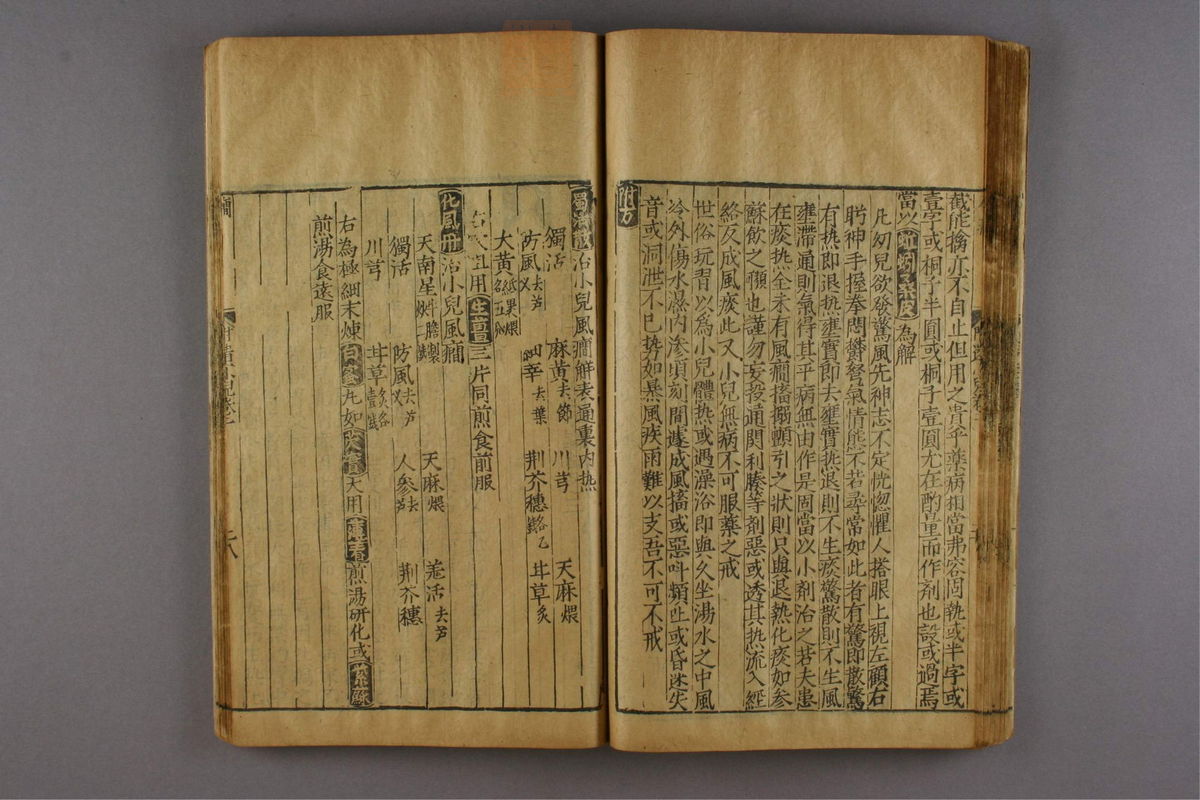 截能擒亦不自止但用之貴乎藥病相當弗容固執或半字或
壹字或桐子半圓或桐子壹圓尤在酌量而作劑也設或過焉
當以為解
凡幼兒欲發驚風先神志不定恍惚懼人搭眼上視左顧右
盻神手握拳悶鬱努氣情態不若尋常如此者有驚即散驚
有热即退热壅實即去壅實热退則不生痰驚散則不生風
壅滯通則氣得其平病無由作是固當以小劑治之若夫患
在痰热全未有風癇搐搦顫引之狀則只與退熱化痰如參
蘇飲之類也謹勿妄投通関利膈等劑惡或透其热流入經
絡反成風痰此又小兒無病不可服藥之戒
世俗玩習以為小兒體热或遇澡浴即與久坐湯水之中風
冷外傷水濕内滲頃刻間遽成風搐或惡呌類此或昏迷失
音或洞泄不已势如暴風疾雨難以支吾不可不戒
附方
治小兒風癇觧表通裏内热
獨活 麻黄去節 川芎 天麻煨
防風去芦又 細辛去葉 荆芥穗 甘草炙
大黄
用生薑三片同煎食前服
化風丹治小兒風癇
天南星牛膽製 天麻煨 羗活去芦
獨活 防風去芦又 人參去芦 荆芥穗
川芎 甘草
右為極細末煉白蜜丸如大用煎湯研化或紫蘇
煎湯食遠服